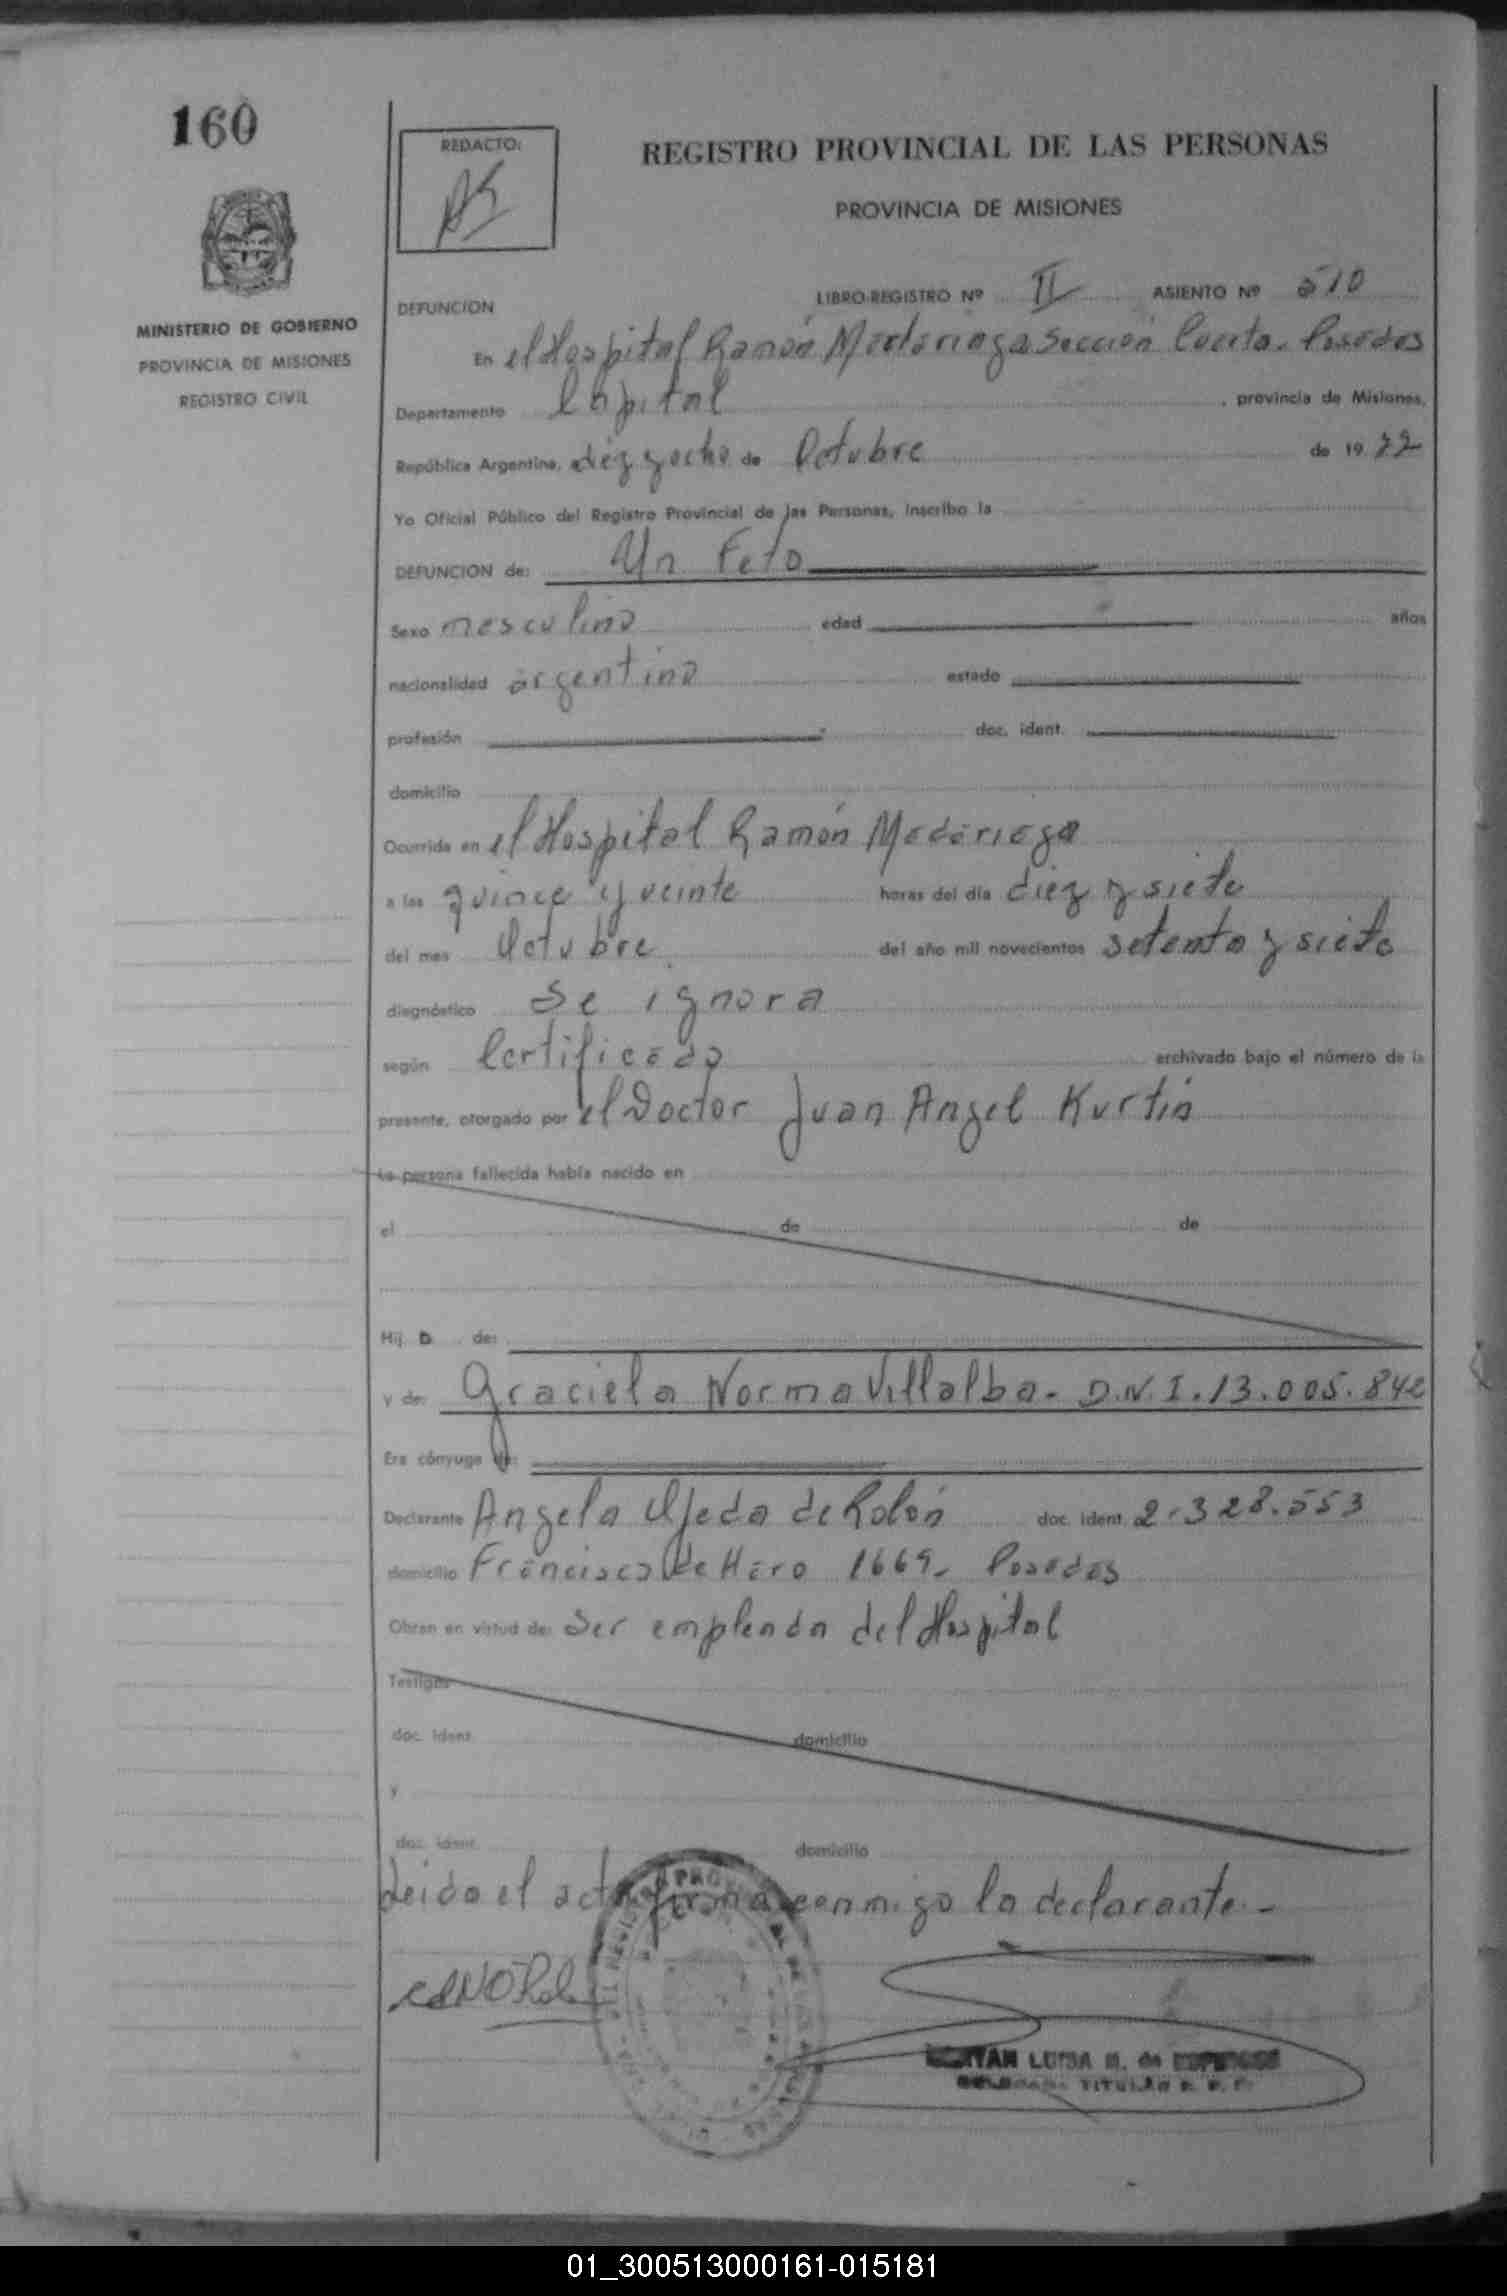 160
REDACTO:
REGISTRO PROVINCIAL DE LAS PERSONAS
PROVINCIA DE MISIONES
MINISTERIO DE GOBIERNO
PROVINCIA DE MISIONES
REGISTRO CIVIL
DEFUNCION
LIBRO-REGISTRO Nº II ASIENTO Nº 510
En el Hospital Ramón Madariaga Sección Cuarta. Posadas
Departamento Capital, provincia de Misiones,
República Argentina, diez y ocho de Octubre de 1977
Yo Oficial Público del Registro Provincial de las Personas, inscribo la
DEFUNCION de: Un Feto
Sexo masculino edad años
nacionalidad argentino estado
profesión doc. ident.
domicilio
Ocurrida en el Hospital Ramón Madariaga
a las quince y veinte horas del día diez y siete
del mes Octubre del año mil novecientos setenta y siete
diagnóstico se ignora
según Certificado archivado bajo el número de la
presente, otorgado por el Doctor Juan Angel Kurtin
La persona fallecida había nacido en
el de de
Hij o de:
y de: Graciela Norma Villalba. D.N.I. 13.005.842
Era cónyuge de:
Declarante Angela Ojeda de Rolón doc. ident. 2.328.553
domicilio Francisco de Haro 1669. Posadas
Obran en virtud de: ser empleada del Hospital
Testigos
doc. ident. domicilio
y
doc. ident. domicilio
Leida el acta firma conmigo la declarante.-
LUISA M. de
TITULAR
01_300513000161-015181